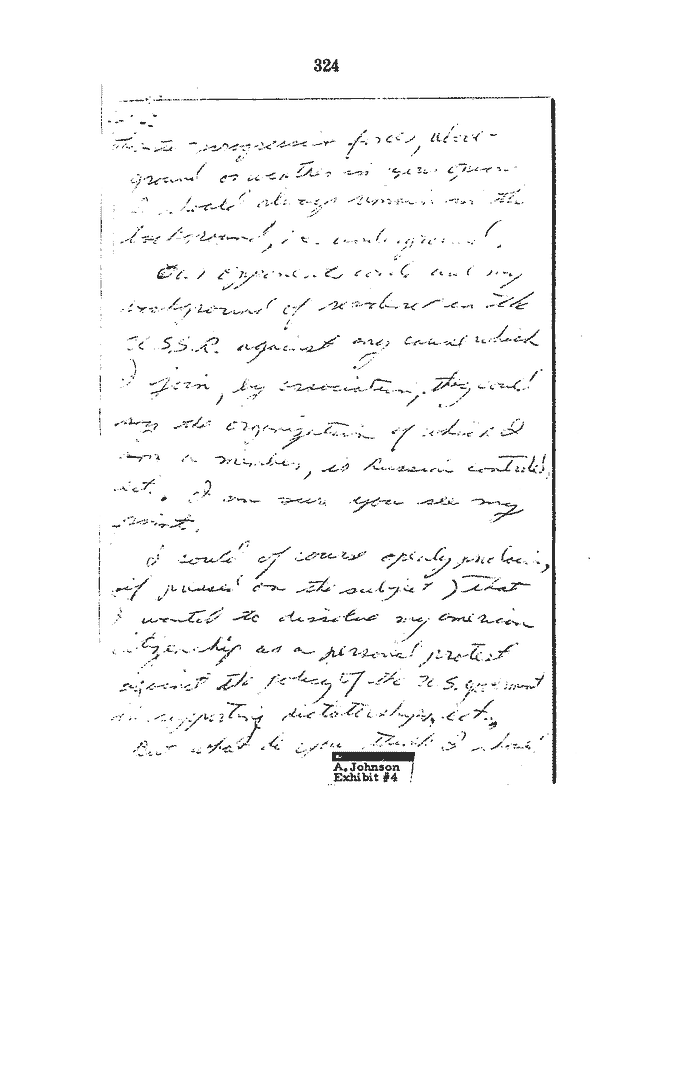 324
progressive forces, above-
ground or weather in your opion
I should always remain in the
background, i.e. underground.
Our opponents could use my
background of residence in the
U.S.S.R. against any cause which
I join, by association, they could
say the organization of which I
am a member, is Russian controled,
ect. I am sure you see my
point.
I could of course openly proclaim,
(if pressed on the subject) that
I wanted to dissolve my american
citizenship as a personal protest
against the policy of the U.S. goverment
in supporting dictatorships, ect,
But what do you think I should
A. Johnson
Exhibit #4